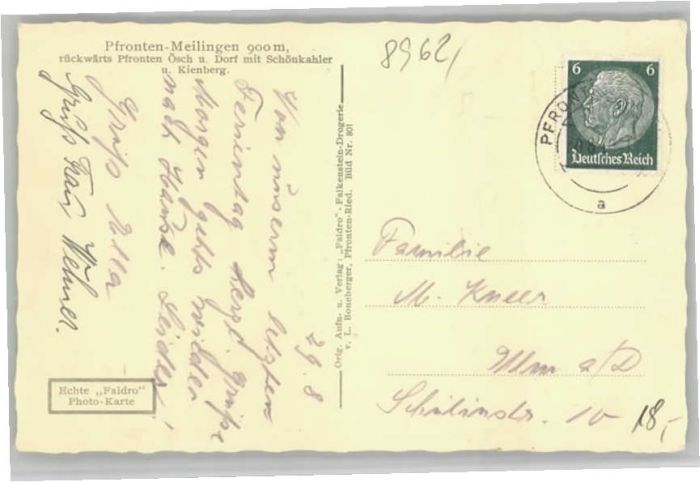 Pfronten-Meilingen 900 m,
rückwärts Pfronten Ösch u. Dorf mit Schönkahler
u. Kienberg.
8962/
6 6
Deutsches Reich
PFRONTEN
a
29. 8
Von unserm letzten
Ferientag herzl. Grüße
Morgen gehts wieder
nach Hause. Leider!
Gruß
Gruß Frau
Orig. Aufn. u. Verlag: „Faldro“-Falkenstein-Drogerie
v. L. Boneberger, Pfronten-Ried. Bild Nr. 801
Familie
M. Kneer
Ulm a/D
10
18,-
Echte „Faldro“
Photo-Karte